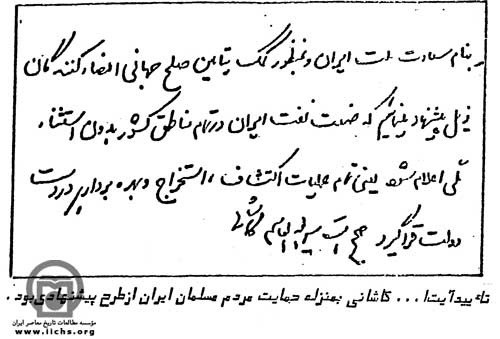 بنام سعادت ملت ایران و بمنظور کمک بتأمین صلح جهانی امضاء کنندگان
ذیل پیشنهاد مینمائیم که صنعت نفت ایران در تمام مناطق کشور بدون استثناء
ملی اعلام شود یعنی تمام عملیات اکتشاف، استخراج و بهره برداری در دست
دولت قرار گیرد صحیح است سید ابوالقاسم کاشانی
تأیید آیت‌ا... کاشانی بمنزله حمایت مردم مسلمان ایران از طرح پیشنهادی بود.
مؤسسه مطالعات تاریخ معاصر ایران
www.iichs.org